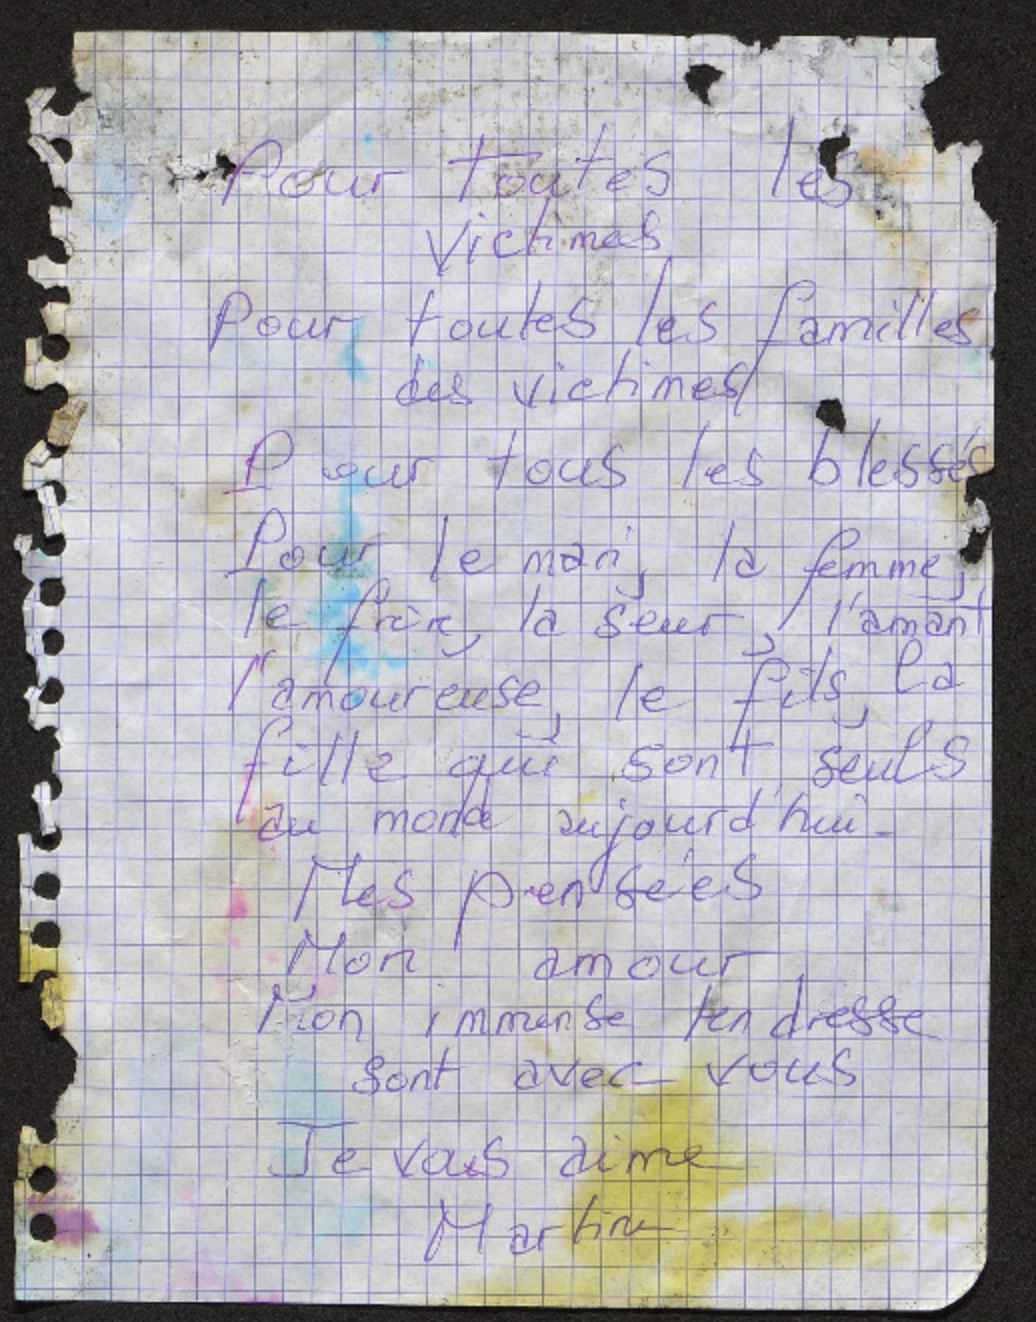 Pour toutes les
victimes
Pour toutes les familles
des victimes
Pour tous les blessés
Pour le mari, la femme,
le frère, la seur, l'amant
l'amoureuse, le fils, la
fille qui sont seuls
au monde aujourd'hui -
Mes pensées
Mon amour
Mon immense tendresse
sont avec vous
Je vous aime
Martine